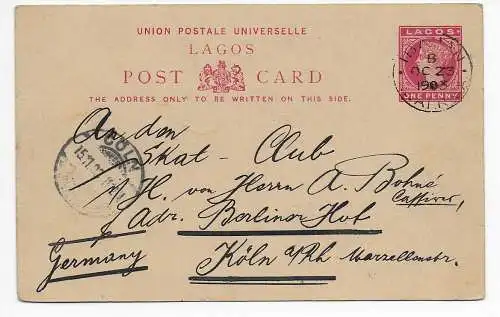 UNION POSTALE UNIVERSELLE
LAGOS
POST CARD
THE ADDRESS ONLY TO BE WRITTEN ON THIS SIDE.
LAGOS
ONE PENNY
B
OC 23
1903
CÖLN
An den
Skat-Club
z/H. von Herrn A. Bohné
Adr. Berliner Hof
Germany
Köln a/Rh Marzellenstr.